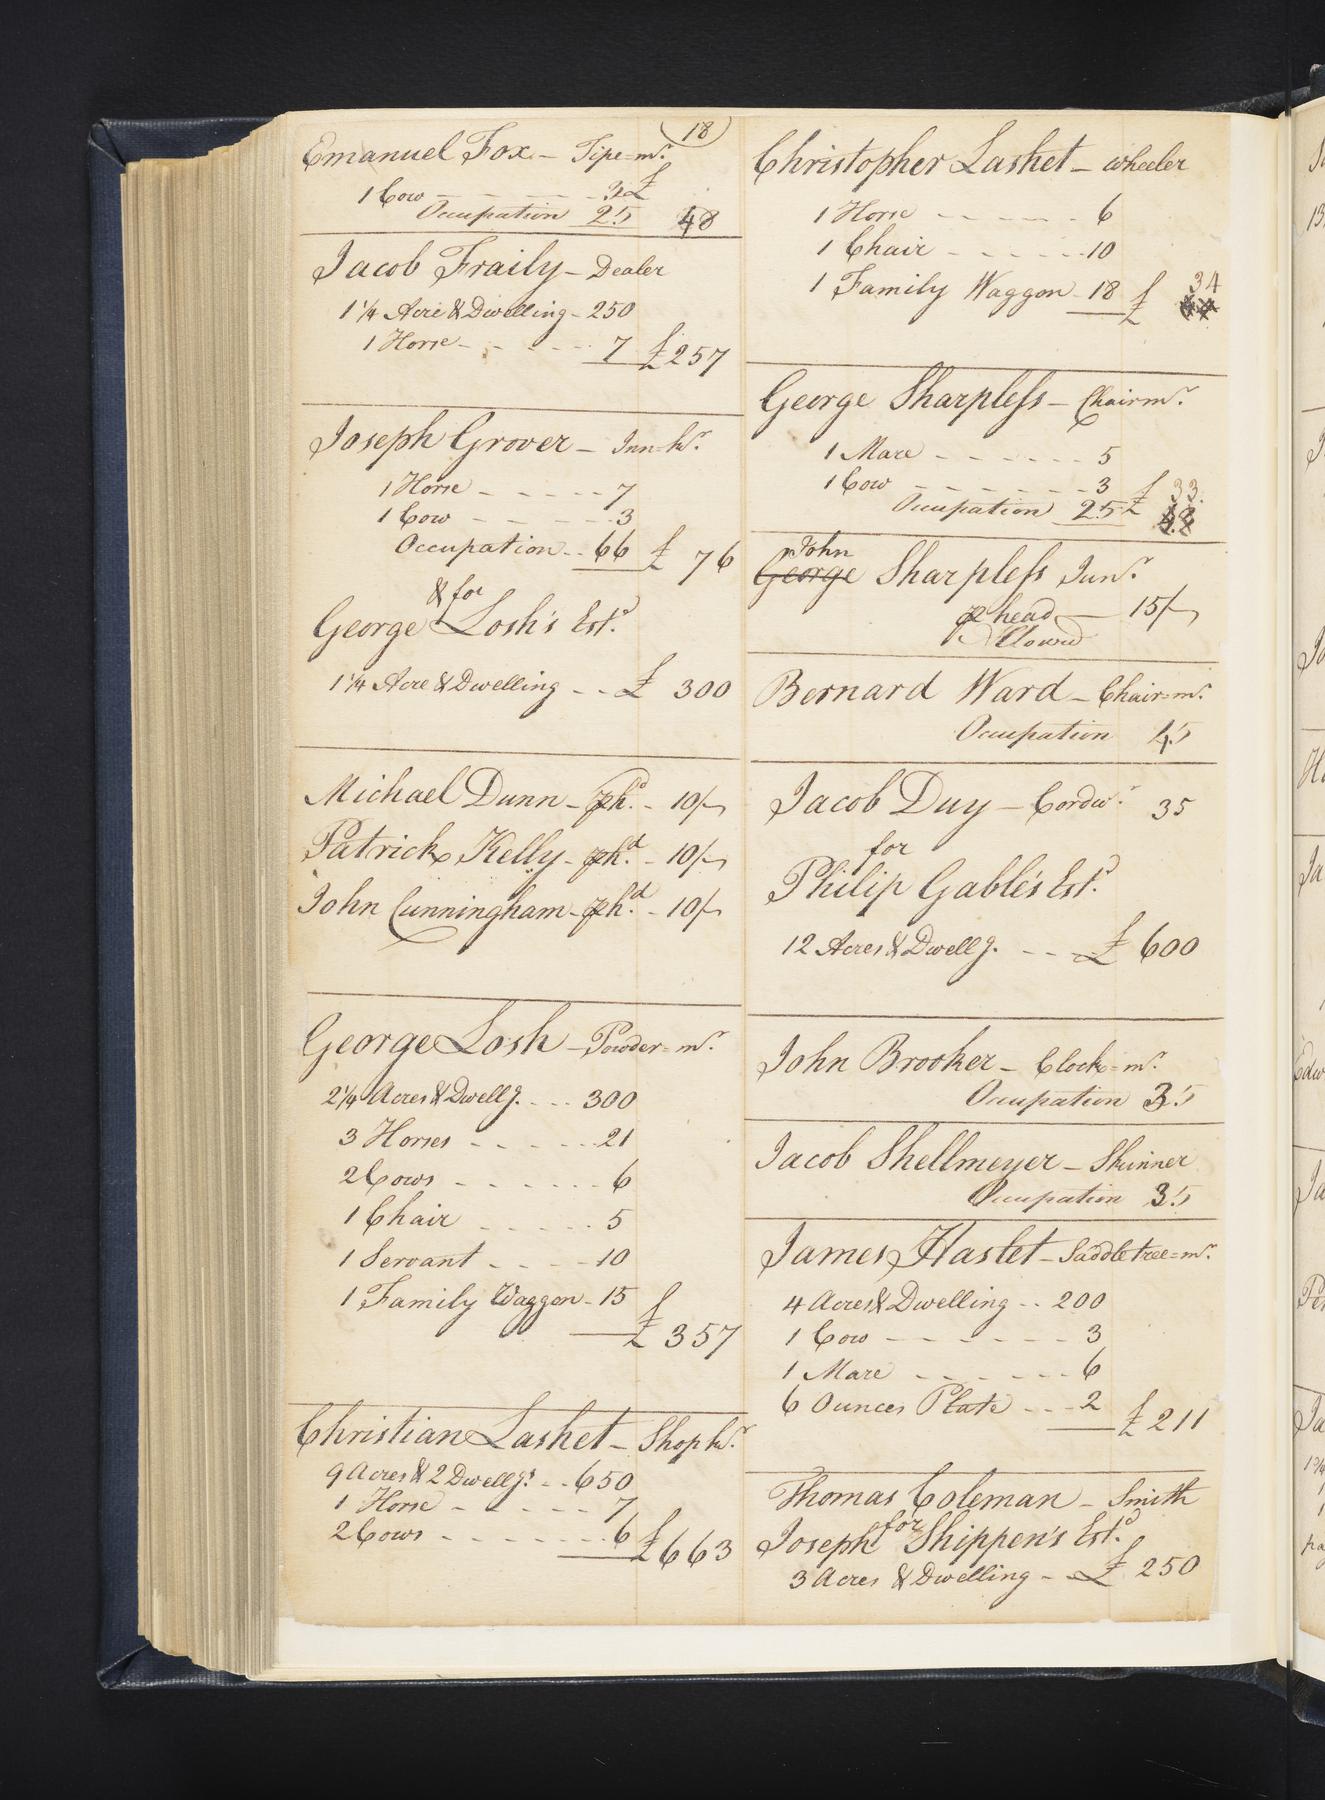 18
Emanuel Fox – Tipe=mr.
1 Cow – – – – 3 £
Occupation 25 48
Jacob Fraily – Dealer
1 1/4 Acre & Dwelling – 250
1 Horse – – – – 7 £ 257
Joseph Grover – Inn=kr.
1 Horse – – – – 7
1 Cow – – – – 3
Occupation – – 66 £ 76
& for
George Losh's Estd.
1 1/4 Acre & Dwelling – – £ 300
Michael Dunn – phd. – 10/–
Patrick Kelly – phd. – 10/–
John Cunningham – phd. – 10/–
George Losh – Powder=mr.
2 1/4 Acres & Dwellg. – – – 300
3 Horses – – – – – 21
2 Cows – – – – – 6
1 Chair – – – – – 5
1 Servant – – – – 10
1 Family Waggon – 15
£ 357
Christian Lashet – Shopkr.
9 Acres & 2 Dwellgs. – – 650
1 Horse – – – – – 7
2 Cows – – – – – 6 £ 663
Christopher Lashet – wheeler
1 Horse – – – – – 6
1 Chair – – – – – 10
1 Family Waggon – 18 £ 34
George Sharpless – Chairmr.
1 Mare – – – – – 5
1 Cow – – – – – 3 £ 33.
Occupation 25 48
John
George Sharpless Junr.
p head – 15/–
Bernard Ward – Chair=mr.
Occupation 45
Jacob Duy – Cordwr. 35
for
Philip Gable's Estd.
12 Acres & Dwellg. – – – £ 600
John Brooker – Clock=mr.
Occupation 35
Jacob Shellmeyer – Skinner
Occupation 35
James Haslet – Saddletree=mr.
4 Acres & Dwelling – – 200
1 Cow – – – – – 3
1 Mare – – – – – 6
6 Ounces Plate – – – 2 £ 211
Thomas Coleman – Smith
for
Joseph Shippen's Estd.
3 Acres & Dwelling – – £ 250